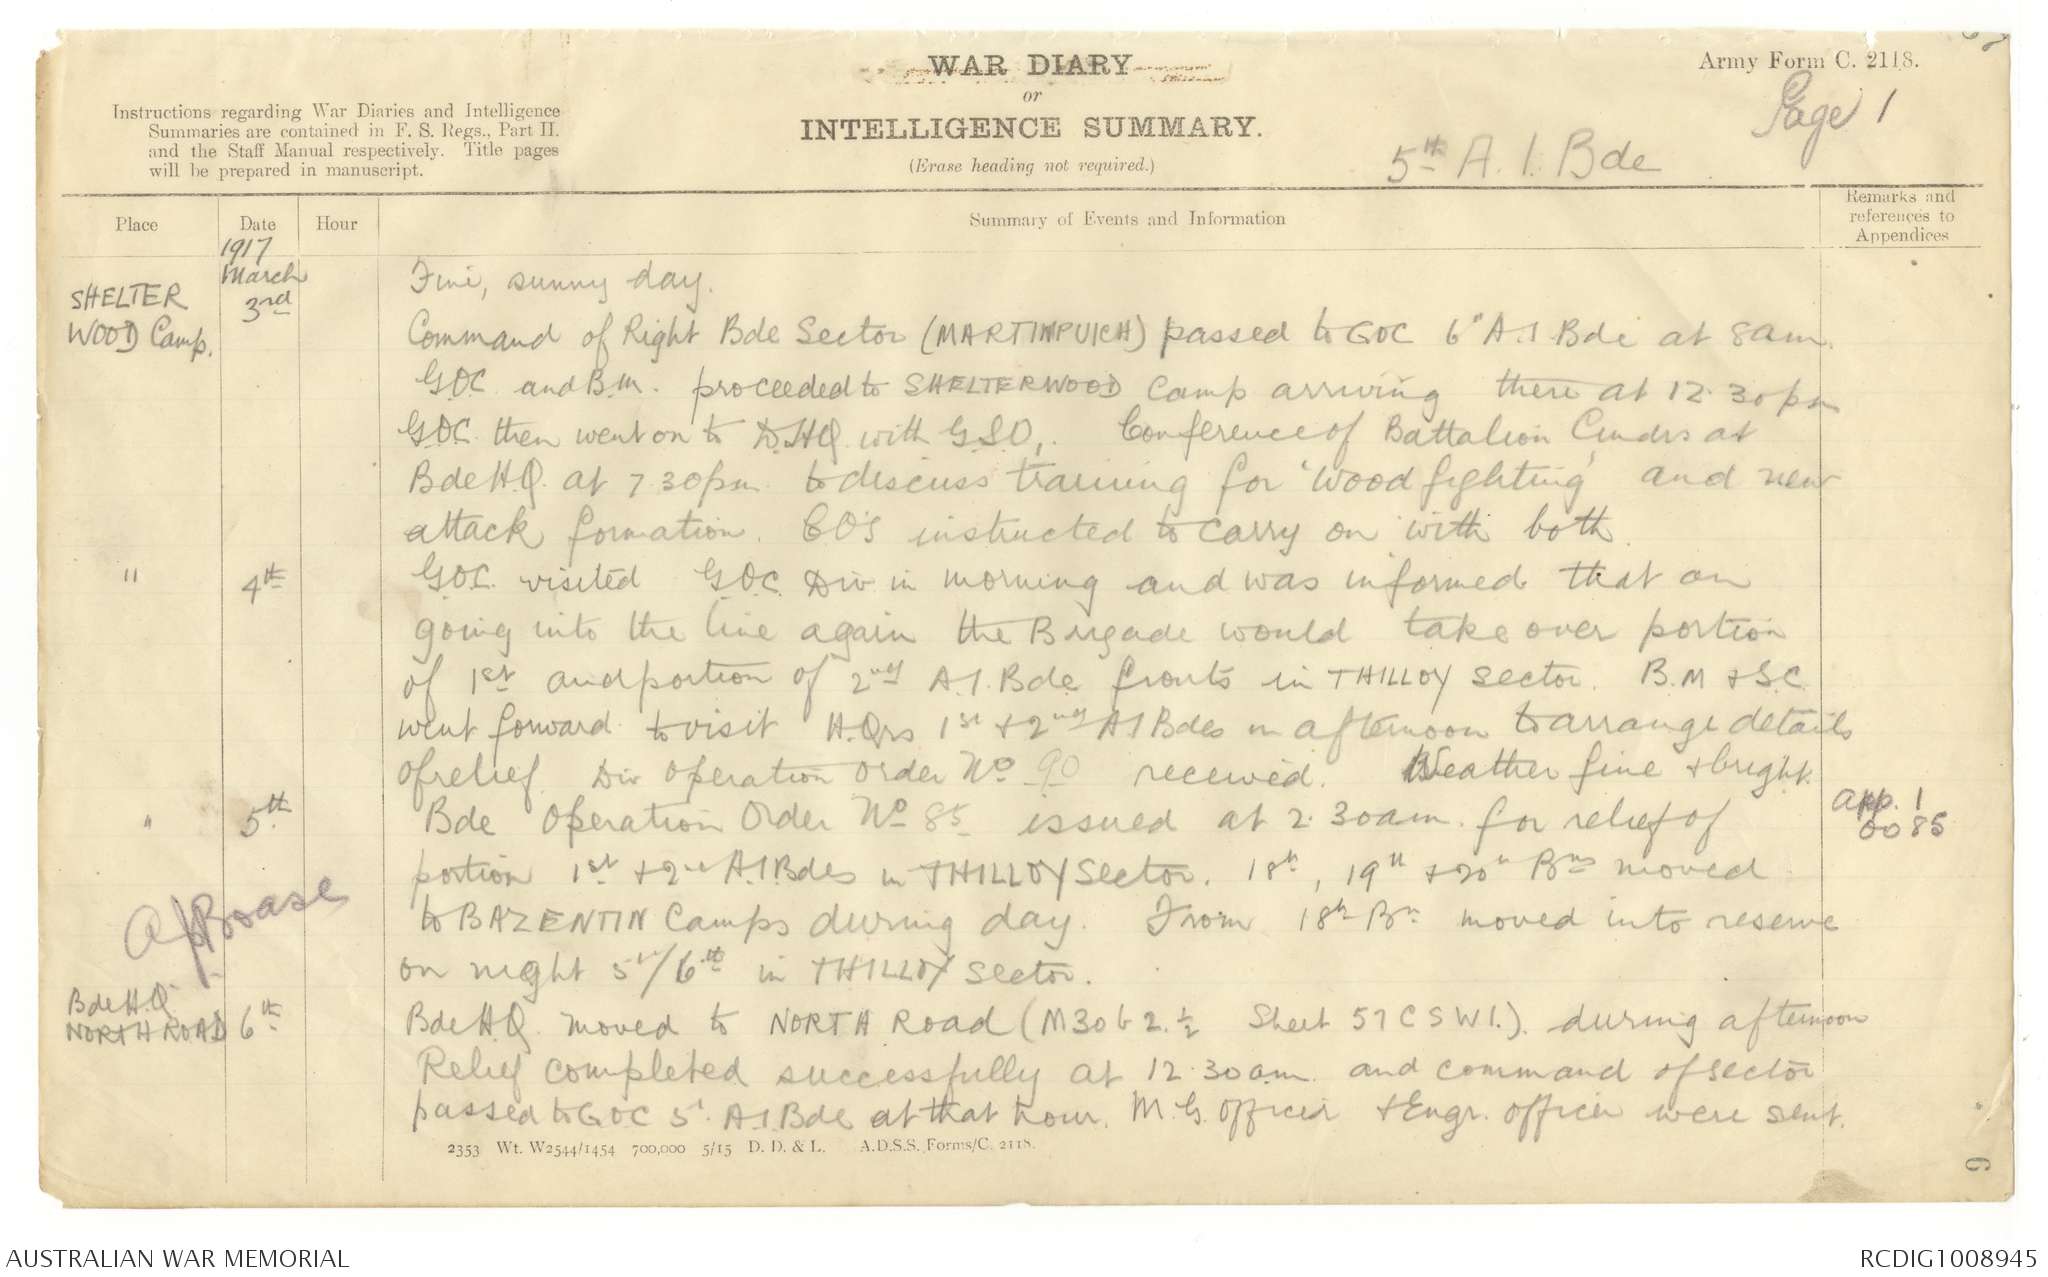 WAR DIARY
or
INTELLIGENCE SUMMARY.
(Erase heading not required.)
Army Form C. 2118.
Page 1
5th A.I. Bde
Instructions regarding War Diaries and Intelligence
Summaries are contained in F. S. Regs., Part II.
and the Staff Manual respectively. Title pages
will be prepared in manuscript.
Place
Date
Hour
Summary of Events and Information
Remarks and
references to
Appendices
1917
March
SHELTER
WOOD Camp.
3rd
Fine, sunny day.
Command of Right Bde Sector (MARTINPUICH) passed to GOC 6" A.I.Bde at 8am.
G.O.C. and B.M. proceeded to SHELTERWOOD Camp arriving there at 12.30pm
G.O.C. then went on to D.H.Q. with G.S.O,. Conference of Battalion Cmdrs at
Bde H.Q. at 7.30pm to discuss training for 'Wood fighting' and new
attack formation. CO's instructed to carry on with both.
" 4th
G.O.C. visited G.O.C. Div in morning and was informed that on
going into the line again the Brigade would take over portion
of 1st and portion of 2nd A.I.Bde fronts in THILLOY Sector. B.M & S.C.
went forward to visit H.Qrs 1st & 2nd A.I Bdes in afternoon to arrange details
of relief. Div Operation Order No 90 received. Weather fine & bright.
" 5th
Bde Operation Order No 85 issued at 2.30am for relief of
App. 1
OO 85
portion 1st & 2nd A.I.Bdes in THILLOY Sector. 18th, 19th & 20th Bns moved
to BAZENTIN Camps during day. From 18th Bn moved into reserve
on night 5th/6th in THILLOY Sector.
A J Boase
Bde H.Q.
NORTH ROAD 6th
Bde H.Q. moved to NORTH Road (M30b 2.½ Sheet 57C SW1.). during afternoon
Relief completed successfully at 12.30am. and command of sector
passed to GOC 5th A.I Bde at that hour. M.G. officer & Engr. officer were sent.
2353 Wt. W2544/1454 700,000 5/15 D. D. & L. A.D.S.S./Forms/C. 2118.
9
AUSTRALIAN WAR MEMORIAL
RCDIG1008945